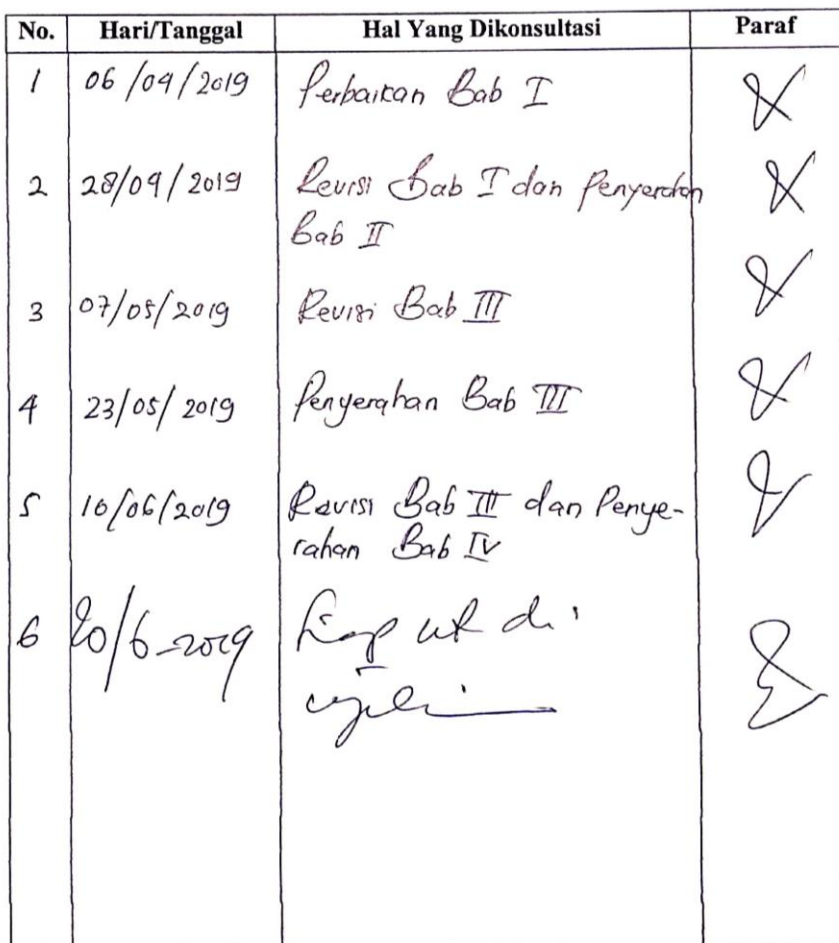 No. Hari/Tanggal Hal Yang Dikonsultasi Paraf
1 06/04/2019 Perbaikan Bab I
2 28/04/2019 Revisi Bab I dan Penyerahan
Bab II
3 07/05/2019 Revisi Bab III
4 23/05/2019 Penyerahan Bab III
5 10/06/2019 Revisi Bab III dan Penye-
rahan Bab IV
6 20/6-2019 Siap ut di